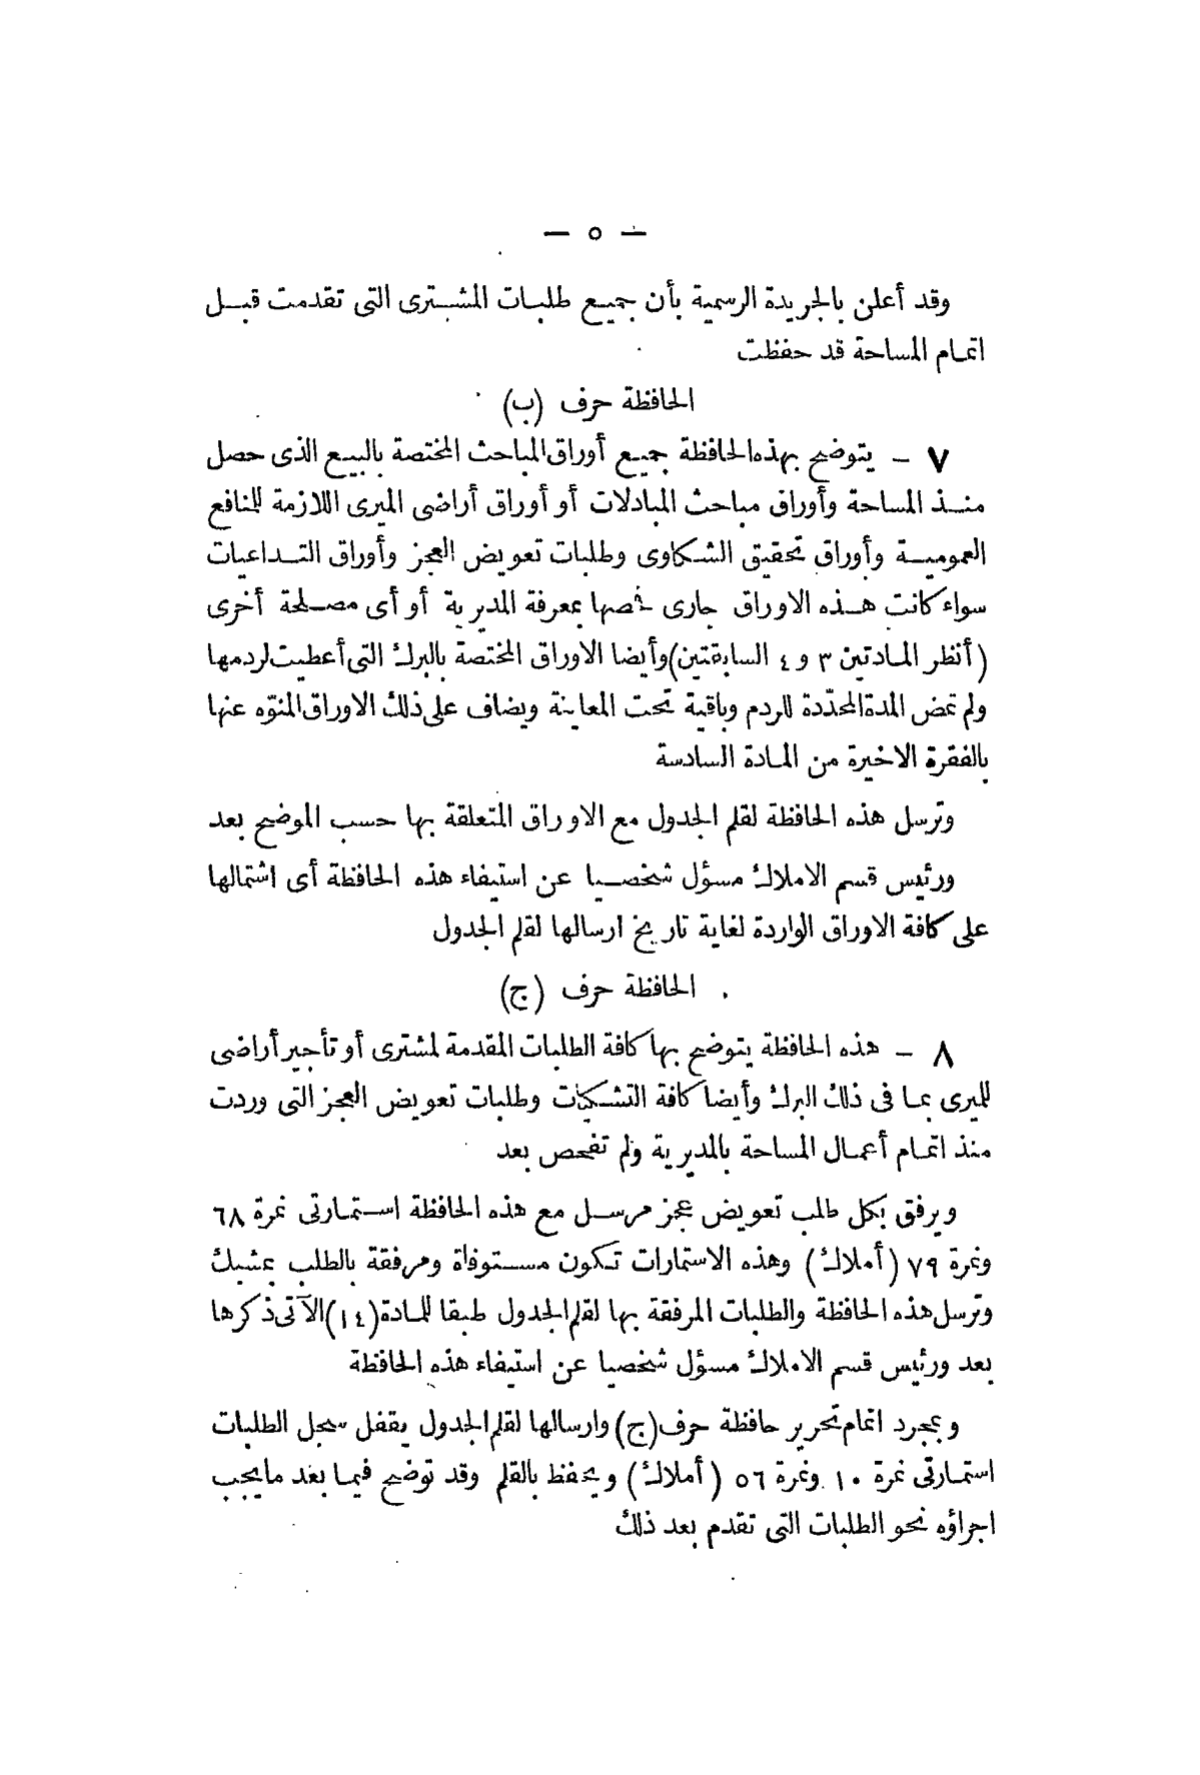 — ٥ —
وقد أعلن بالجريدة الرسمية بأن جميع طلبات المشترى التى تقدمت قبل
اتمام المساحة قد حفظت
الحافظة حرف (ب)
٧ — يتوضح بهذه الحافظة جميع أوراق المباحث المختصة بالبيع الذى حصل
منذ المساحة وأوراق مباحث المبادلات أو أوراق أراضى الميرى اللازمة للمنافع
العمومية وأوراق تحقيق الشكاوى وطلبات تعويض العجز وأوراق التداعيات
سواء كانت هذه الاوراق جارى فحصها بمعرفة المديرية أو أى مصلحة أخرى
(أنظر المادتين ٣ و ٤ السابقتين) وأيضا الاوراق المختصة بالبرك التى أعطيت لردمها
ولم تمض المدة المحدّدة للردم وباقية تحت المعاينة ويضاف على ذلك الاوراق المنوّه عنها
بالفقرة الاخيرة من المادة السادسة
وترسل هذه الحافظة لقلم الجدول مع الاوراق المتعلقة بها حسب الموضح بعد
ورئيس قسم الاملاك مسؤل شخصيا عن استيفاء هذه الحافظة أى اشتمالها
على كافة الاوراق الواردة لغاية تاريخ ارسالها لقلم الجدول
الحافظة حرف (ج)
٨ — هذه الحافظة يتوضح بها كافة الطلبات المقدمة لمشترى أو تأجير أراضى
للميرى بما فى ذلك البرك وأيضا كافة التشكيات وطلبات تعويض العجز التى وردت
منذ اتمام أعمال المساحة بالمديرية ولم تفحص بعد
ويرفق بكل طلب تعويض عجز مرسل مع هذه الحافظة استمارتى نمرة ٦٨
ونمرة ٧٩ (أملاك) وهذه الاستمارات تكون مستوفاة ومرفقة بالطلب بمشبك
وترسل هذه الحافظة والطلبات المرفقة بها لقلم الجدول طبقا للمادة (١٤) الآتى ذكرها
بعد ورئيس قسم الاملاك مسؤل شخصيا عن استيفاء هذه الحافظة
وبمجرد اتمام تحرير حافظة حرف (ج) وارسالها لقلم الجدول يقفل سجل الطلبات
استمارتى نمرة ١٠ ونمرة ٥٦ (أملاك) ويحفظ بالقلم وقد توضح فيما بعد ما يجب
اجراؤه نحو الطلبات التى تقدم بعد ذلك